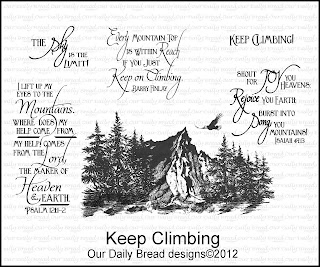 THE Sky
IS THE
LIMIT!
Every MOUNTAIN TOP
IS WITHIN Reach
IF YOU JUST
Keep on Climbing.
BARRY FINLAY
KEEP CLIMBING!
I LIFT UP MY
EYES TO THE
Mountains.
WHERE DOES MY
HELP COME FROM.
MY HELP COMES
FROM THE Lord,
THE MAKER OF
Heaven
& EARTH.
PSALM 121:1-2
SHOUT
FOR JOY YOU
HEAVENS;
Rejoice YOU EARTH;
BURST INTO
Song YOU
MOUNTAINS!
ISAIAH 49:13
Keep Climbing
Our Daily Bread designs©2012